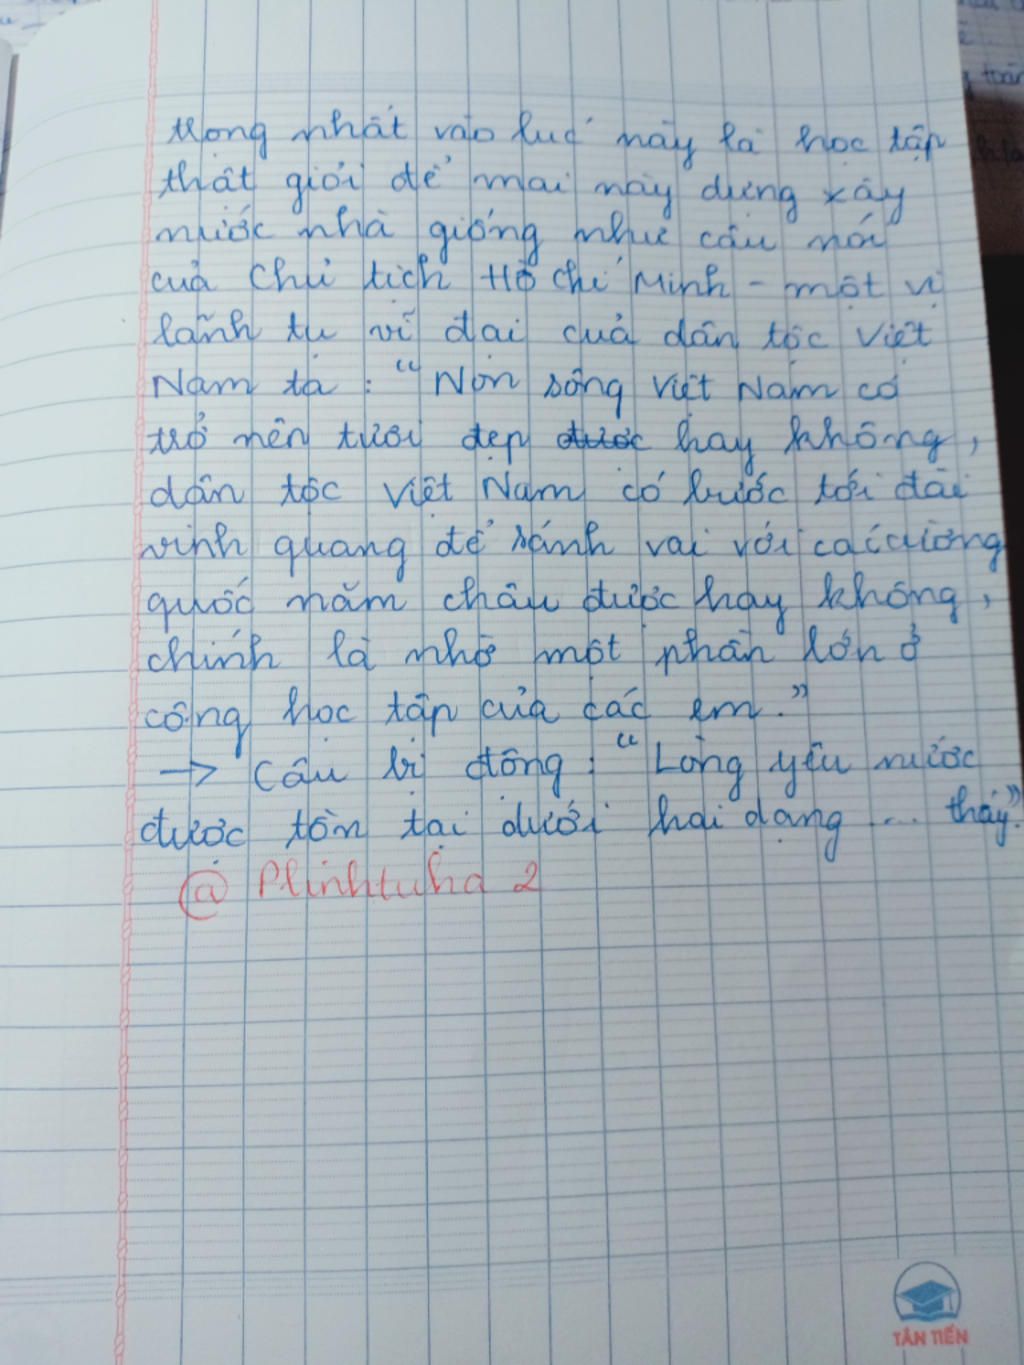 trọng nhất vào lúc này là học tập
thật giỏi để mai này dựng xây
nước nhà giống như câu nói
của Chủ tịch Hồ Chí Minh - một vị
lãnh tụ vĩ đại của dân tộc Việt
Nam ta : "Non sông Việt Nam có
trở nên tươi đẹp được hay không,
dân tộc Việt Nam có bước tới đài
vinh quang để sánh vai với các cường
quốc năm châu được hay không,
chính là nhờ một phần lớn ở
công học tập của các em."
→ Câu bị động : "Lòng yêu nước
được tồn tại dưới hai dạng ... thấy"
@ Plinhtuha 2
TÂN TIẾN